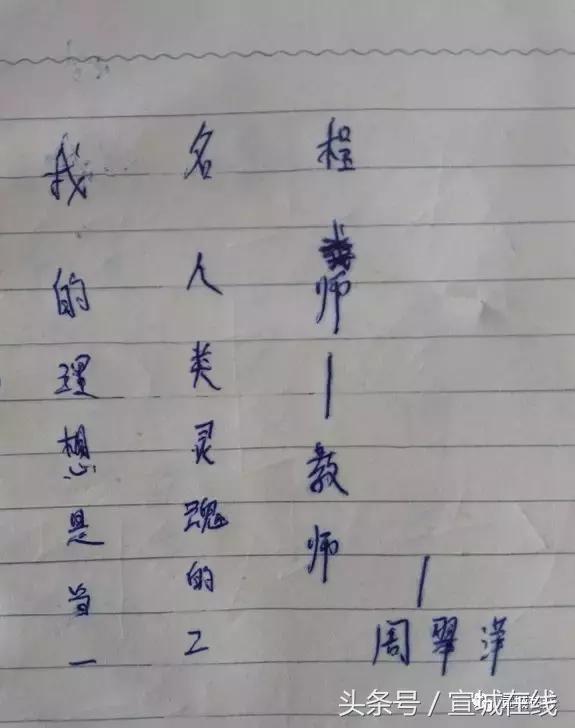 我的理想是当一
名人类灵魂的工
程师—教师
—周翠
头条号 / 宣城在线